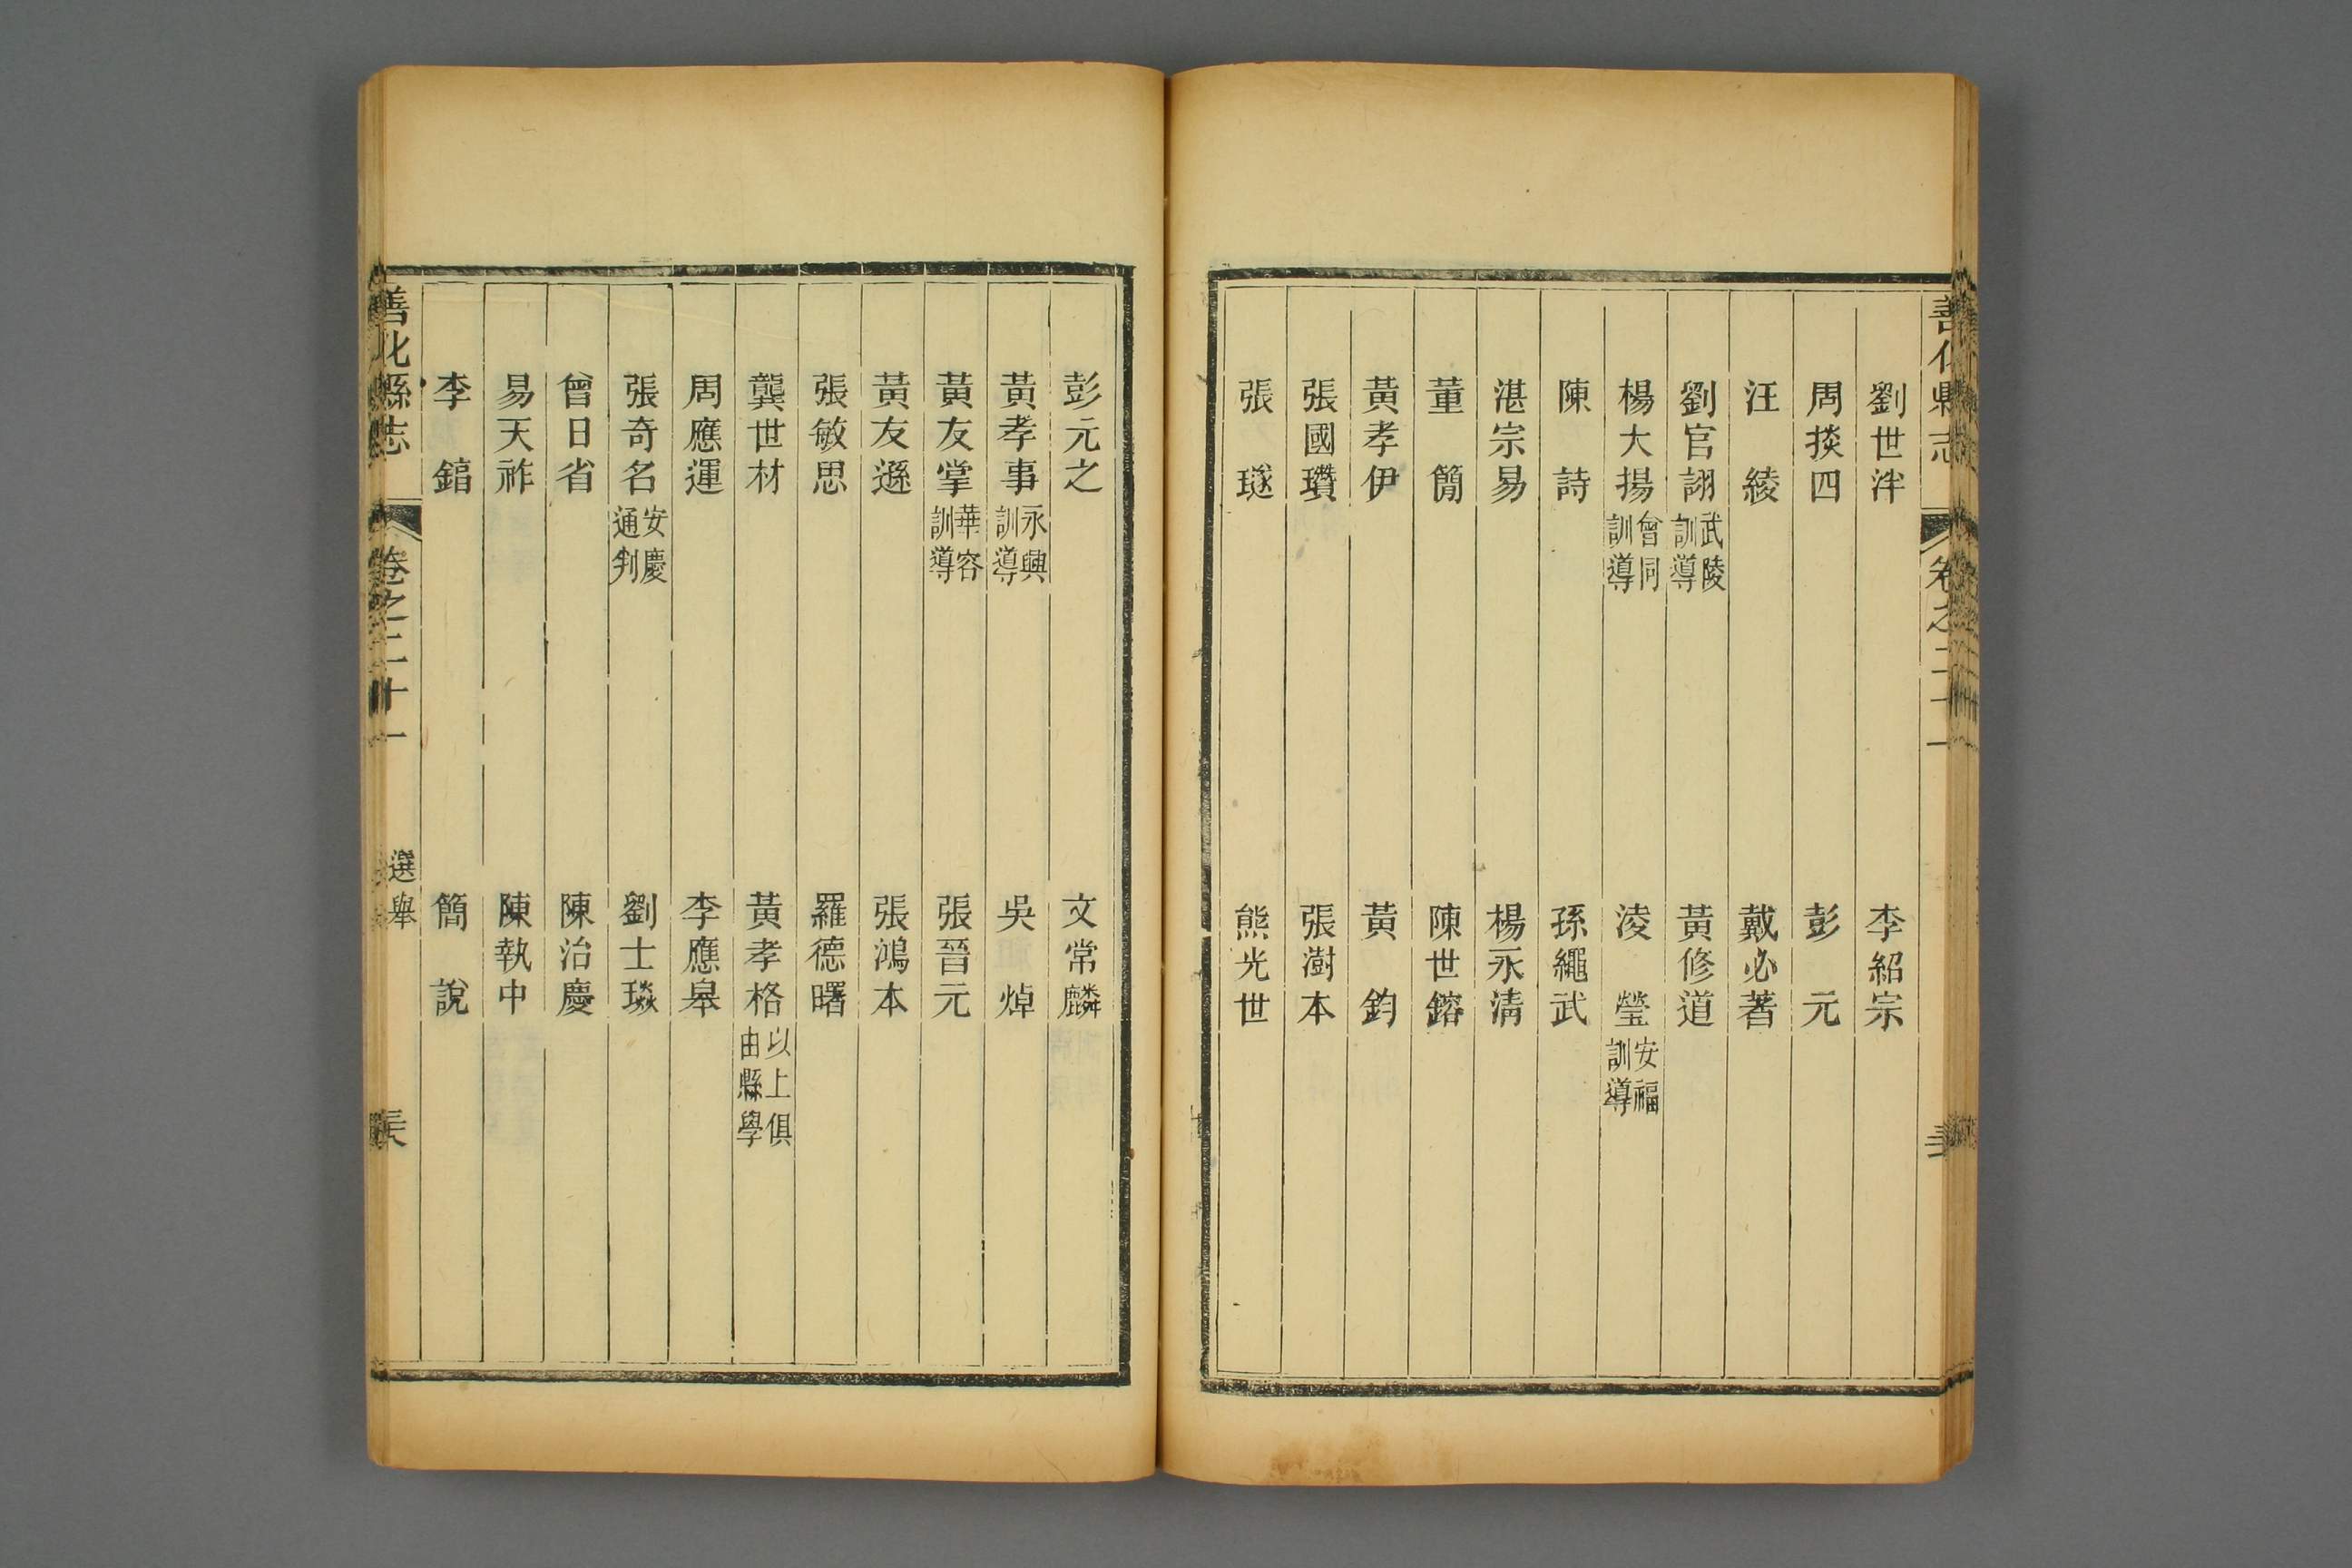 善化縣志
卷之二十一
劉世泮 李紹宗
周掞四 彭元
汪綾 戴必著
劉官詡 武陵訓導 黃修道
楊大揚 會同訓導 淩瑩 安福訓導
陳詩 孫繩武
湛宗易 楊永清
董簡 陳世鎔
黃孝伊 黃鈞
張國瓚 張澍本
張璲 熊光世
彭元之 文常麟
黃孝事 永興訓導 吳焯
黃友掌 華容訓導 張晉元
黃友遜 張鴻本
張敏思 羅德曙
龔世材 黃孝格 以上俱由縣學
周應運 李應皋
張奇名 安慶通判 劉士琰
曾日省 陳治慶
易天祚 陳執中
李 簡說
善化縣志
卷之二十一
選舉